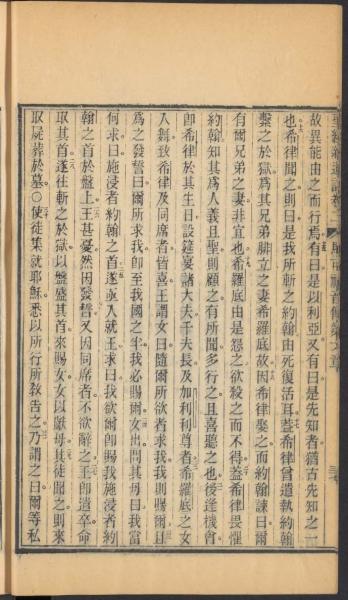 故異能由之而行焉有曰是以利亞又有曰是先知者猶古先知之一
也希律聞之則曰是我所斬之約翰由死復活耳蓋希律曾遣執約翰
繫之於獄爲其兄弟腓立之妻希羅底故因希律娶之而約翰諫曰爾
有爾兄弟之妻非宜也希羅底由是怨之欲殺之而不得蓋希律畏懼
約翰知其爲人義且聖則顧之有所聞多行之且喜聽之也後逢機會
卽希律於其生日設筵宴諸大夫千夫長及加利利尊者希羅底之女
入舞致希律及同席者皆喜王謂女曰隨爾所欲者求我我則賜爾且
爲之發誓曰爾所求我卽至我國之半我必賜爾女出問其母曰我當
何求曰施浸者約翰之首遂亟入就王求曰我欲爾卽賜我施浸者約
翰之首於盤上王甚憂然因發誓又因同席者不欲辭之王卽遣卒命
取其首遂往斬之於獄以盤盛其首來賜女女以獻母其徒聞之則來
取屍葬於墓○使徒集就耶穌悉以所行所敎告之乃謂之曰爾等私